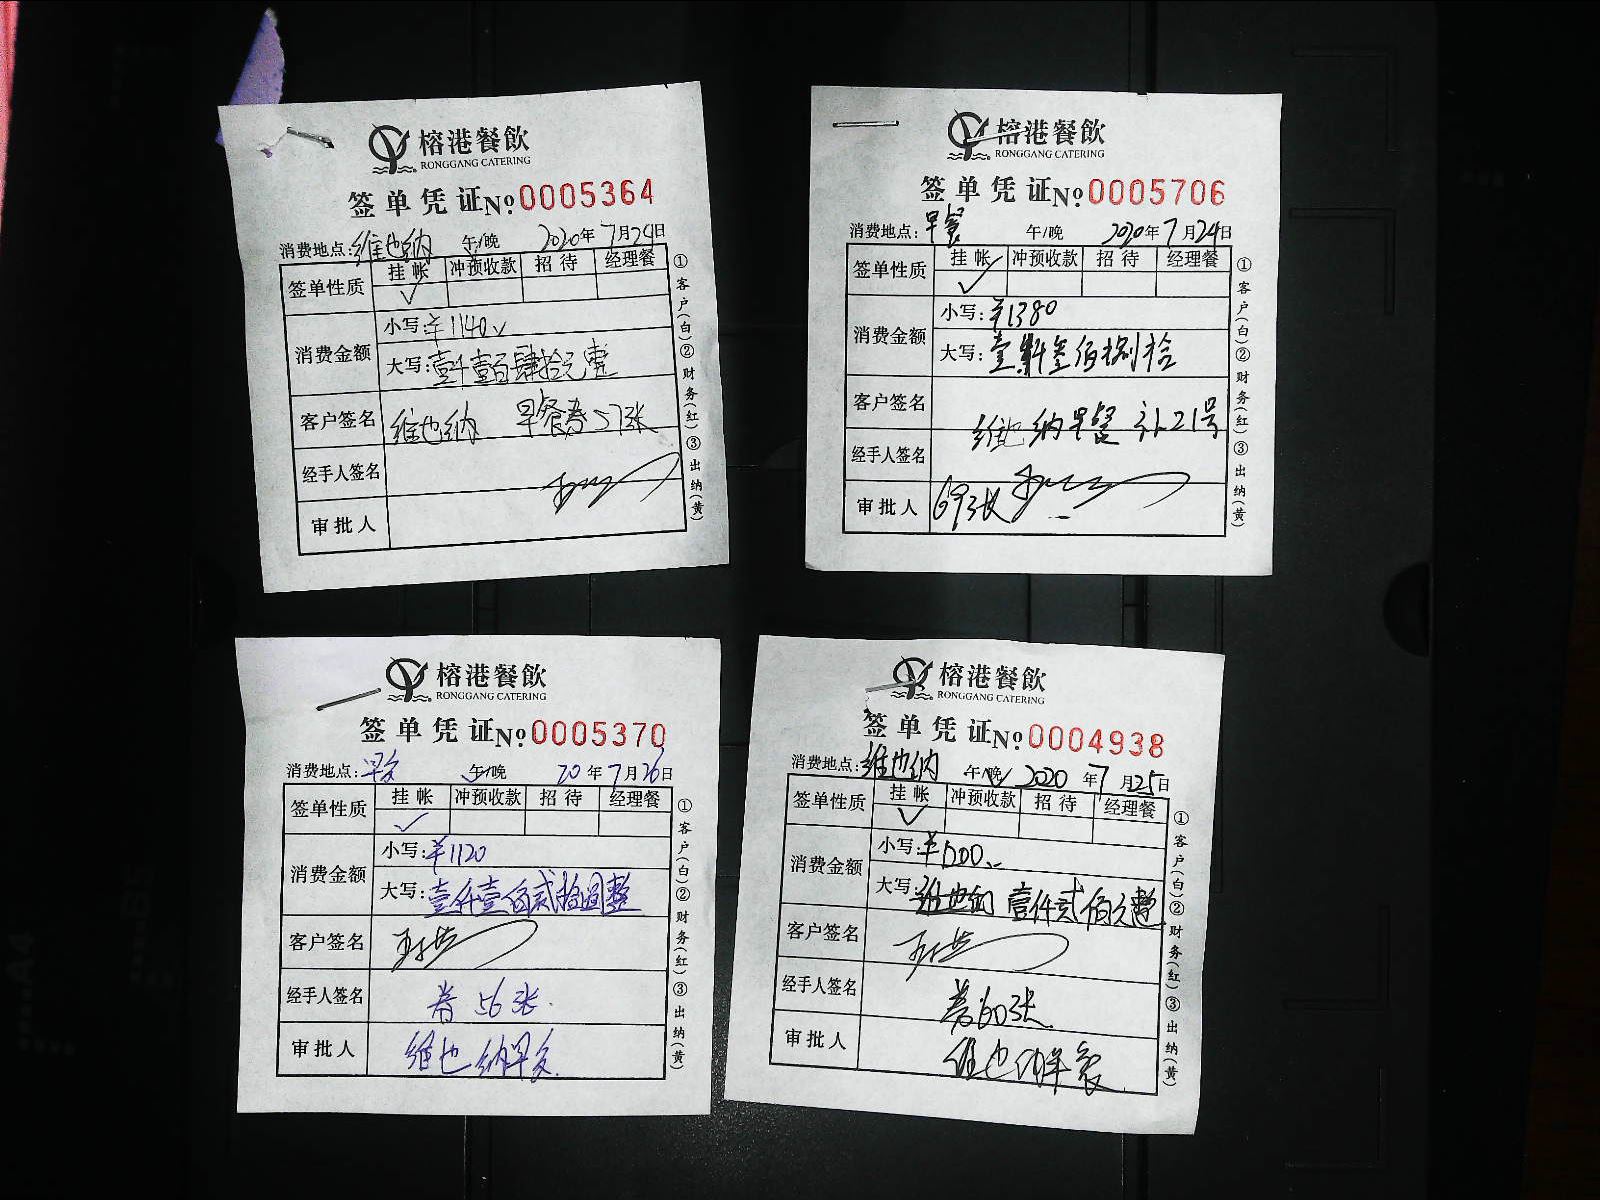 榕港餐飲
RONGGANG CATERING
签单凭证№0005364
消费地点:维也纳 午/晚 2020年7月24日
签单性质 挂帐 冲预收款 招待 经理餐
✓
消费金额 小写:¥1140
大写:壹仟壹百肆拾元整
客户签名 维也纳 早餐券57张
经手人签名
审批人
①客户(白)②财务(红)③出纳(黄)
榕港餐飲
RONGGANG CATERING
签单凭证№0005706
消费地点:早餐 午/晚 2020年7月24日
签单性质 挂帐 冲预收款 招待 经理餐
✓
消费金额 小写:¥1380
大写:壹仟叁佰捌拾
客户签名 维也纳早餐 补21号
经手人签名
审批人 69张
①客户(白)②财务(红)③出纳(黄)
榕港餐飲
RONGGANG CATERING
签单凭证№0005370
消费地点:早 午/晚 20年7月26日
签单性质 挂帐 冲预收款 招待 经理餐
✓
消费金额 小写:¥1120
大写:壹仟壹佰贰拾圆整
客户签名
经手人签名 券56张.
审批人 维也纳早
①客户(白)②财务(红)③出纳(黄)
榕港餐飲
RONGGANG CATERING
签单凭证№0004938
消费地点:维也纳 午/晚 2020年7月25日
签单性质 挂帐 冲预收款 招待 经理餐
✓
消费金额 小写:¥1200
大写 维也纳 壹仟贰佰元整
客户签名
经手人签名 券60张
审批人 维也纳早餐
①客户(白)②财务(红)③出纳(黄)